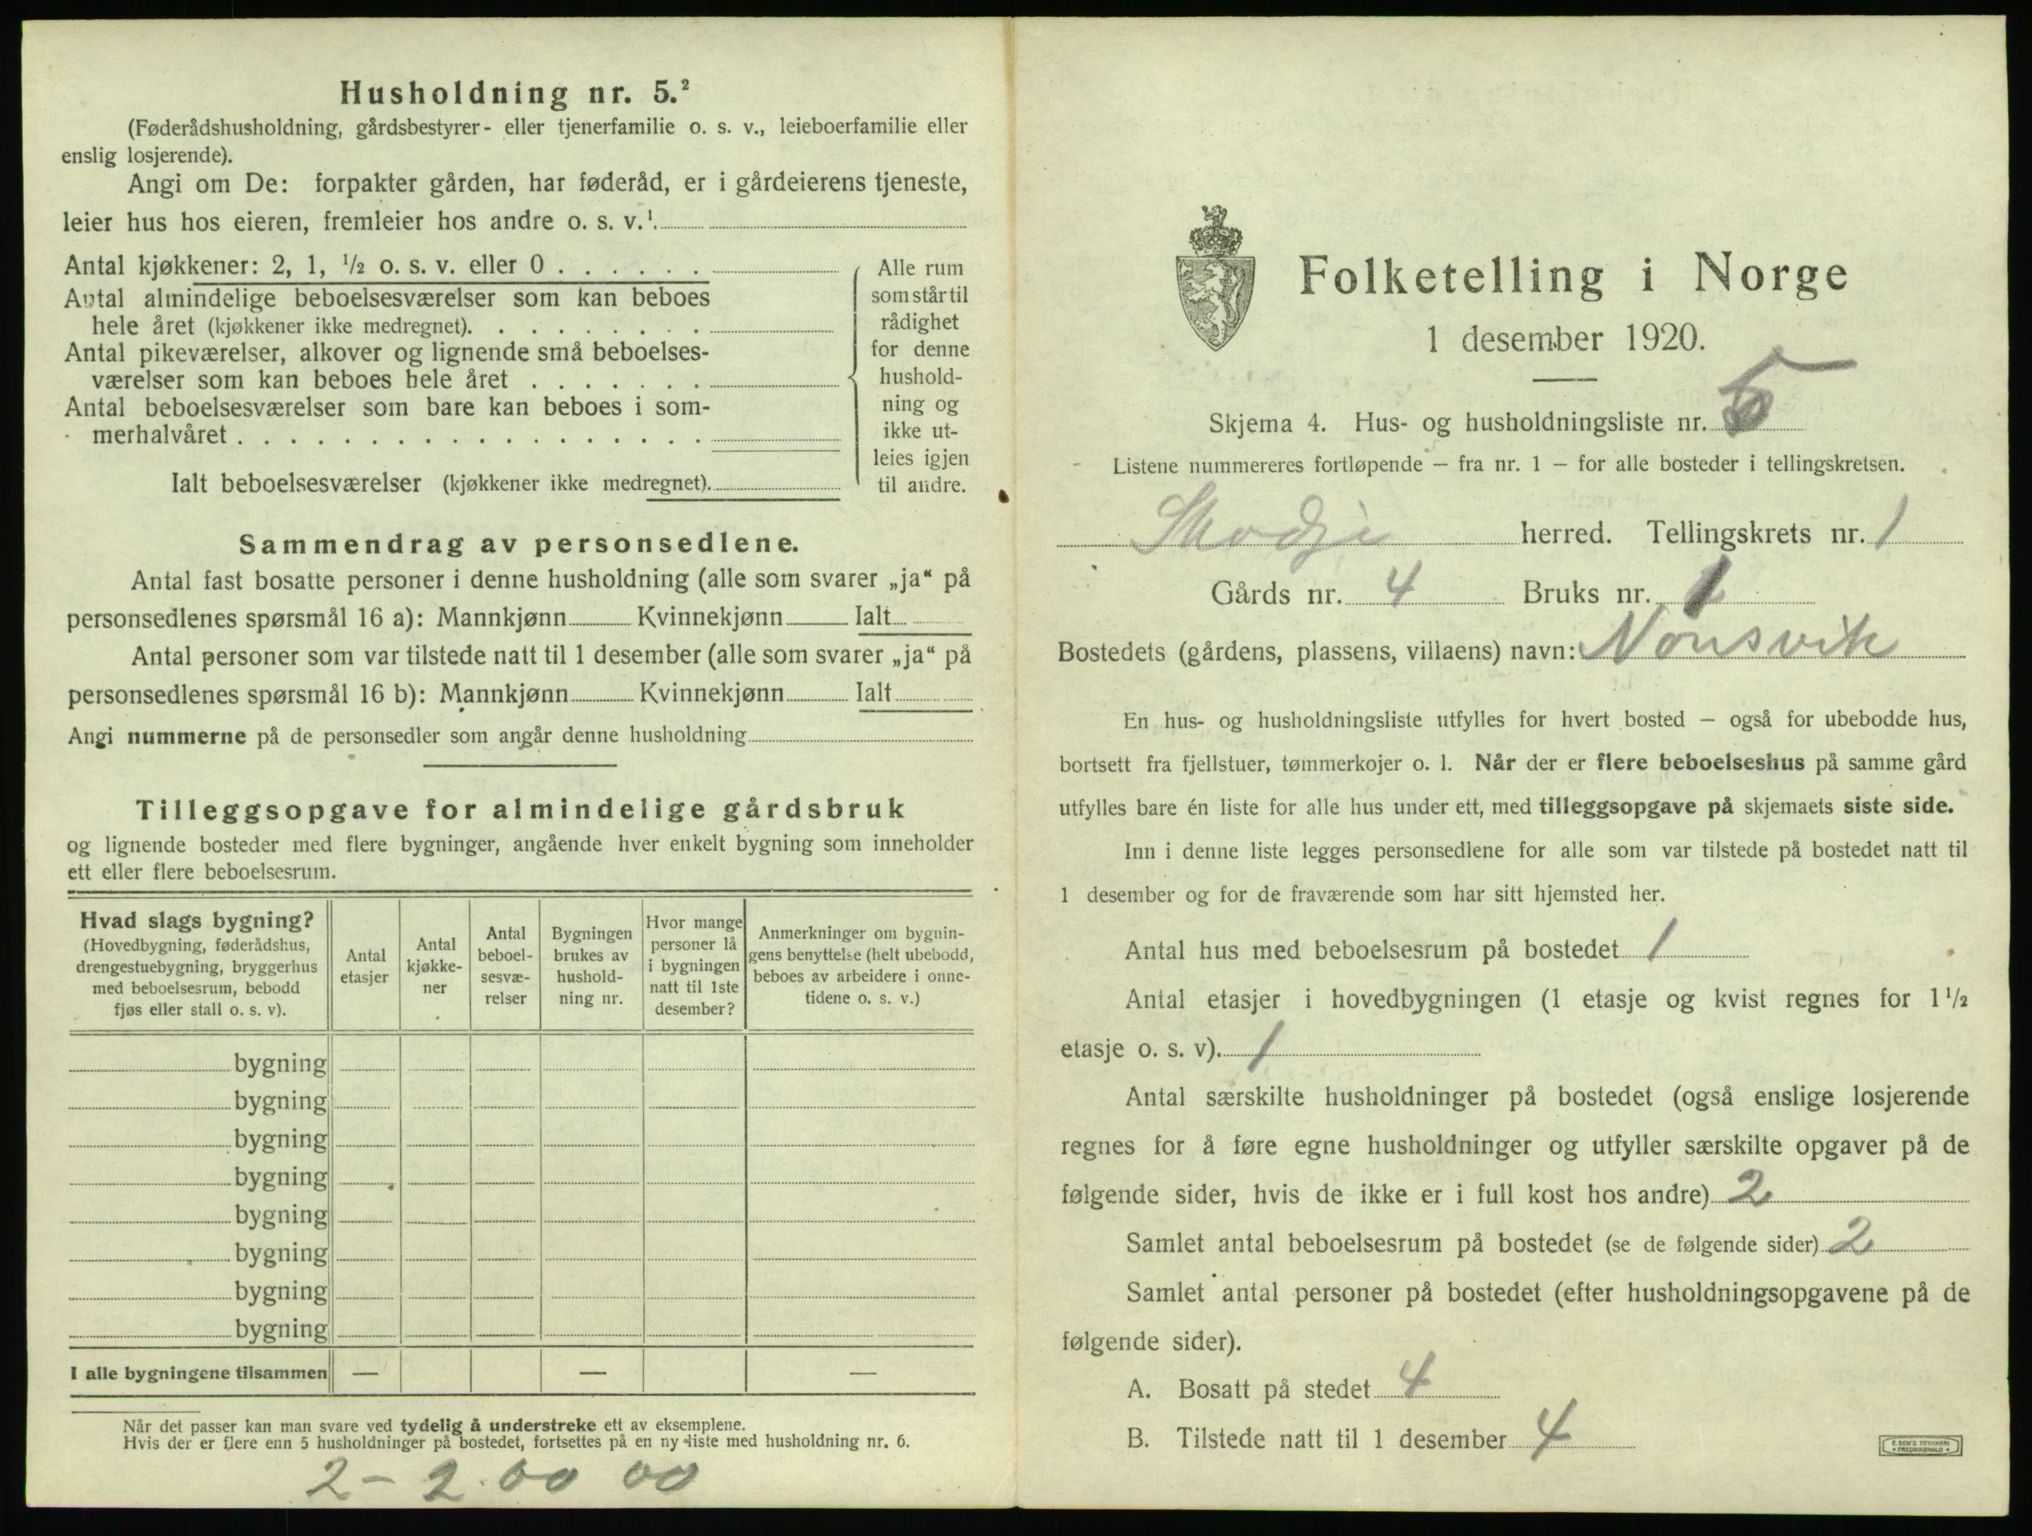 Husholdning nr. 5.²
(Føderådshusholdning, gårdsbestyrer- eller tjenerfamilie o. s. v., leieboerfamilie eller
enslig losjerende).
Angi om De: forpakter gården, har føderåd, er i gårdeierens tjeneste,
leier hus hos eieren, fremleier hos andre o. s. v.¹
Antal kjøkkener: 2, 1, ½ o. s. v. eller 0 . . . . . .
Antal almindelige beboelsesværelser som kan beboes
hele året (kjøkkener ikke medregnet). . . . . . . . .
Antal pikeværelser, alkover og lignende små beboelses-
værelser som kan beboes hele året . . . . . . .
Antal beboelsesværelser som bare kan beboes i som-
merhalvåret . . . . . . . . . . . . . . . . . .
Ialt beboelsesværelser (kjøkkener ikke medregnet).
Alle rum
som står til
rådighet
for denne
hushold-
ning og
ikke ut-
leies igjen
til andre.
Sammendrag av personsedlene.
Antal fast bosatte personer i denne husholdning (alle som svarer „ja“ på
personsedlenes spørsmål 16 a): Mannkjønn Kvinnekjønn Ialt
Antal personer som var tilstede natt til 1 desember (alle som svarer „ja“ på
personsedlenes spørsmål 16 b): Mannkjønn Kvinnekjønn Ialt
Angi nummerne på de personsedler som angår denne husholdning
Tilleggsopgave for almindelige gårdsbruk
og lignende bosteder med flere bygninger, angående hver enkelt bygning som inneholder
ett eller flere beboelsesrum.
Hvad slags bygning?
(Hovedbygning, føderådshus,
drengestuebygning, bryggerhus
med beboelsesrum, bebodd
fjøs eller stall o. s. v).
Antal
etasjer
Antal
kjøkke-
ner
Antal
beboel-
sesvæ-
relser
Bygningen
brukes av
hushold-
ning nr.
Hvor mange
personer lå
i bygningen
natt til 1ste
desember?
Anmerkninger om bygnin-
gens benyttelse (helt ubebodd,
beboes av arbeidere i onne-
tidene o. s. v.)
bygning
bygning
bygning
bygning
bygning
bygning
bygning
bygning
I alle bygningene tilsammen — — —
Når det passer kan man svare ved tydelig å understreke ett av eksemplene.
Hvis der er flere enn 5 husholdninger på bostedet, fortsettes på en ny liste med husholdning nr. 6.
2 – 2 00 00
Folketelling i Norge
1 desember 1920.
Skjema 4. Hus- og husholdningsliste nr. 5
Listene nummereres fortløpende – fra nr. 1 – for alle bosteder i tellingskretsen.
Skodje herred. Tellingskrets nr. 1
Gårds nr. 4 Bruks nr. 1
Bostedets (gårdens, plassens, villaens) navn: Nonsvik
En hus- og husholdningsliste utfylles for hvert bosted – også for ubebodde hus,
bortsett fra fjellstuer, tømmerkojer o. l. Når der er flere beboelseshus på samme gård
utfylles bare én liste for alle hus under ett, med tilleggsopgave på skjemaets siste side.
Inn i denne liste legges personsedlene for alle som var tilstede på bostedet natt til
1 desember og for de fraværende som har sitt hjemsted her.
Antal hus med beboelsesrum på bostedet 1
Antal etasjer i hovedbygningen (1 etasje og kvist regnes for 1½
etasje o. s. v). 1
Antal særskilte husholdninger på bostedet (også enslige losjerende
regnes for å føre egne husholdninger og utfyller særskilte opgaver på de
følgende sider, hvis de ikke er i full kost hos andre) 2
Samlet antal beboelsesrum på bostedet (se de følgende sider) 2
Samlet antal personer på bostedet (efter husholdningsopgavene på de
følgende sider).
A. Bosatt på stedet 4
B. Tilstede natt til 1 desember 4